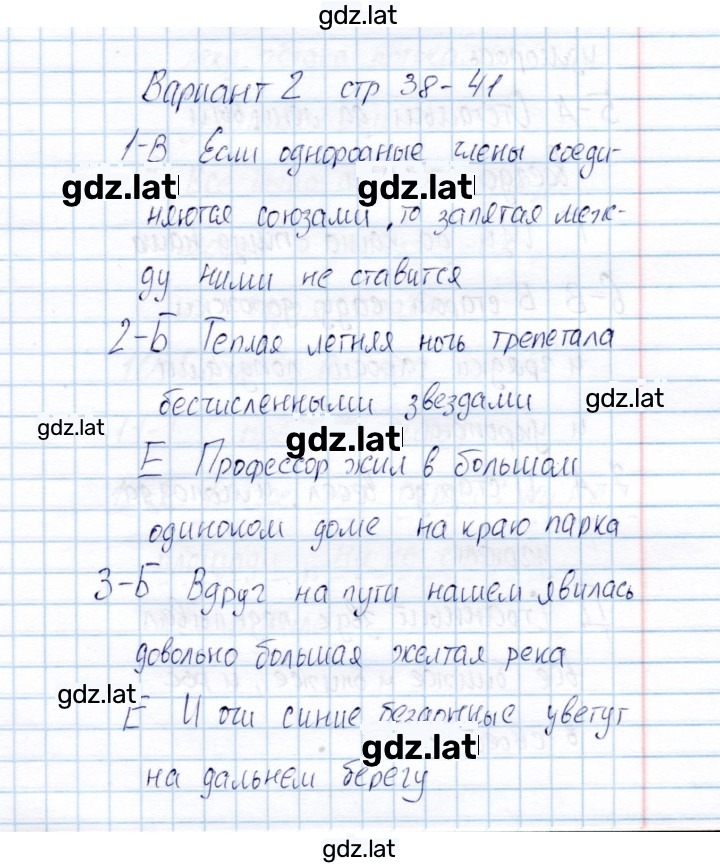 gdz.lat
Вариант 2 стр 38-41
1-В Если однородные члены соеди-
gdz.lat gdz.lat
няются союзами, то запятая меж-
ду ними не ставится
2-Б Теплая летняя ночь трепетала
бесчисленными звездами
gdz.lat
gdz.lat gdz.lat
Е Профессор жил в большом
одиноком доме на краю парка
3-Б Вдруг на пути нашем явилась
довольно большая желтая река
gdz.lat
Е И очи синие бездонные цветут
gdz.lat
на дальнем берегу
gdz.lat